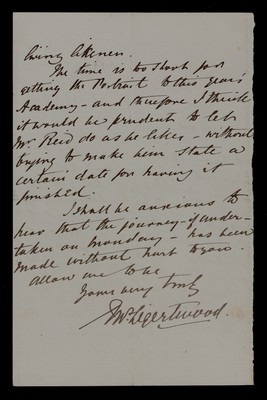 living likeness.
The time is too short for
getting the Portrait to this year's
Academy - and therefore I think
it would be prudent to let
Mr Reid do as he likes - without
trying to make him state a
certain date for having it
finished.
I shall be anxious to
hear that the journey - if under-
taken on Monday - has been
made without hurt to you.
Allow me to be
Yours very truly
Ligertwood.